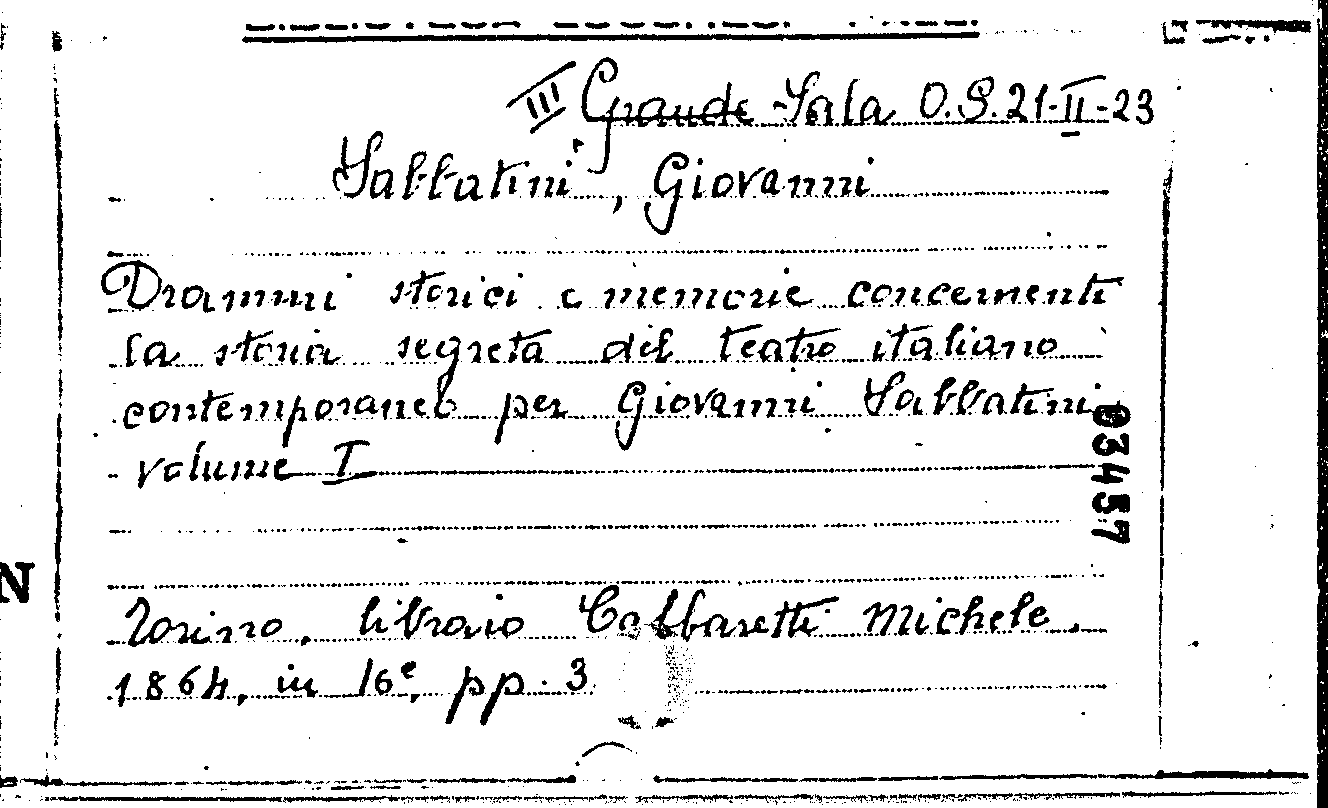 III Grande Sala O.S.21-II-23
Sabbatini, Giovanni
Drammi storici e memorie concernenti
la storia segreta del teatro italiano
contemporaneo per Giovanni Sabbatini
volume I
03457
N
Torino, libraio Cabbaretti Michele.
1864, in 16º, pp. 3